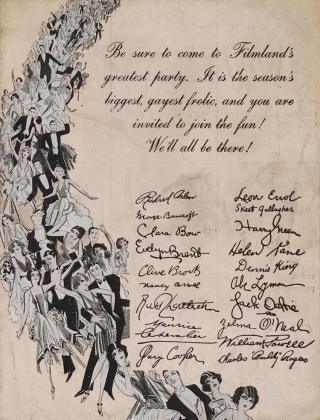 Be sure to come to Filmland's
greatest party. It is the season's
biggest, gayest frolic, and you are
invited to join the fun!
We'll all be there!
Richard Arlen
George Bancroft
Clara Bow
Evelyn Brent
Clive Brook
Nancy Carroll
Ruth Chatterton
Maurice
Chevalier
Gary Cooper
Leon Errol
Skeet Gallagher
Harry Green
Helen Kane
Dennis King
Abe Lyman
Jack Oakie
Zelma O'Neal
William Powell
Charles "Buddy" Rogers